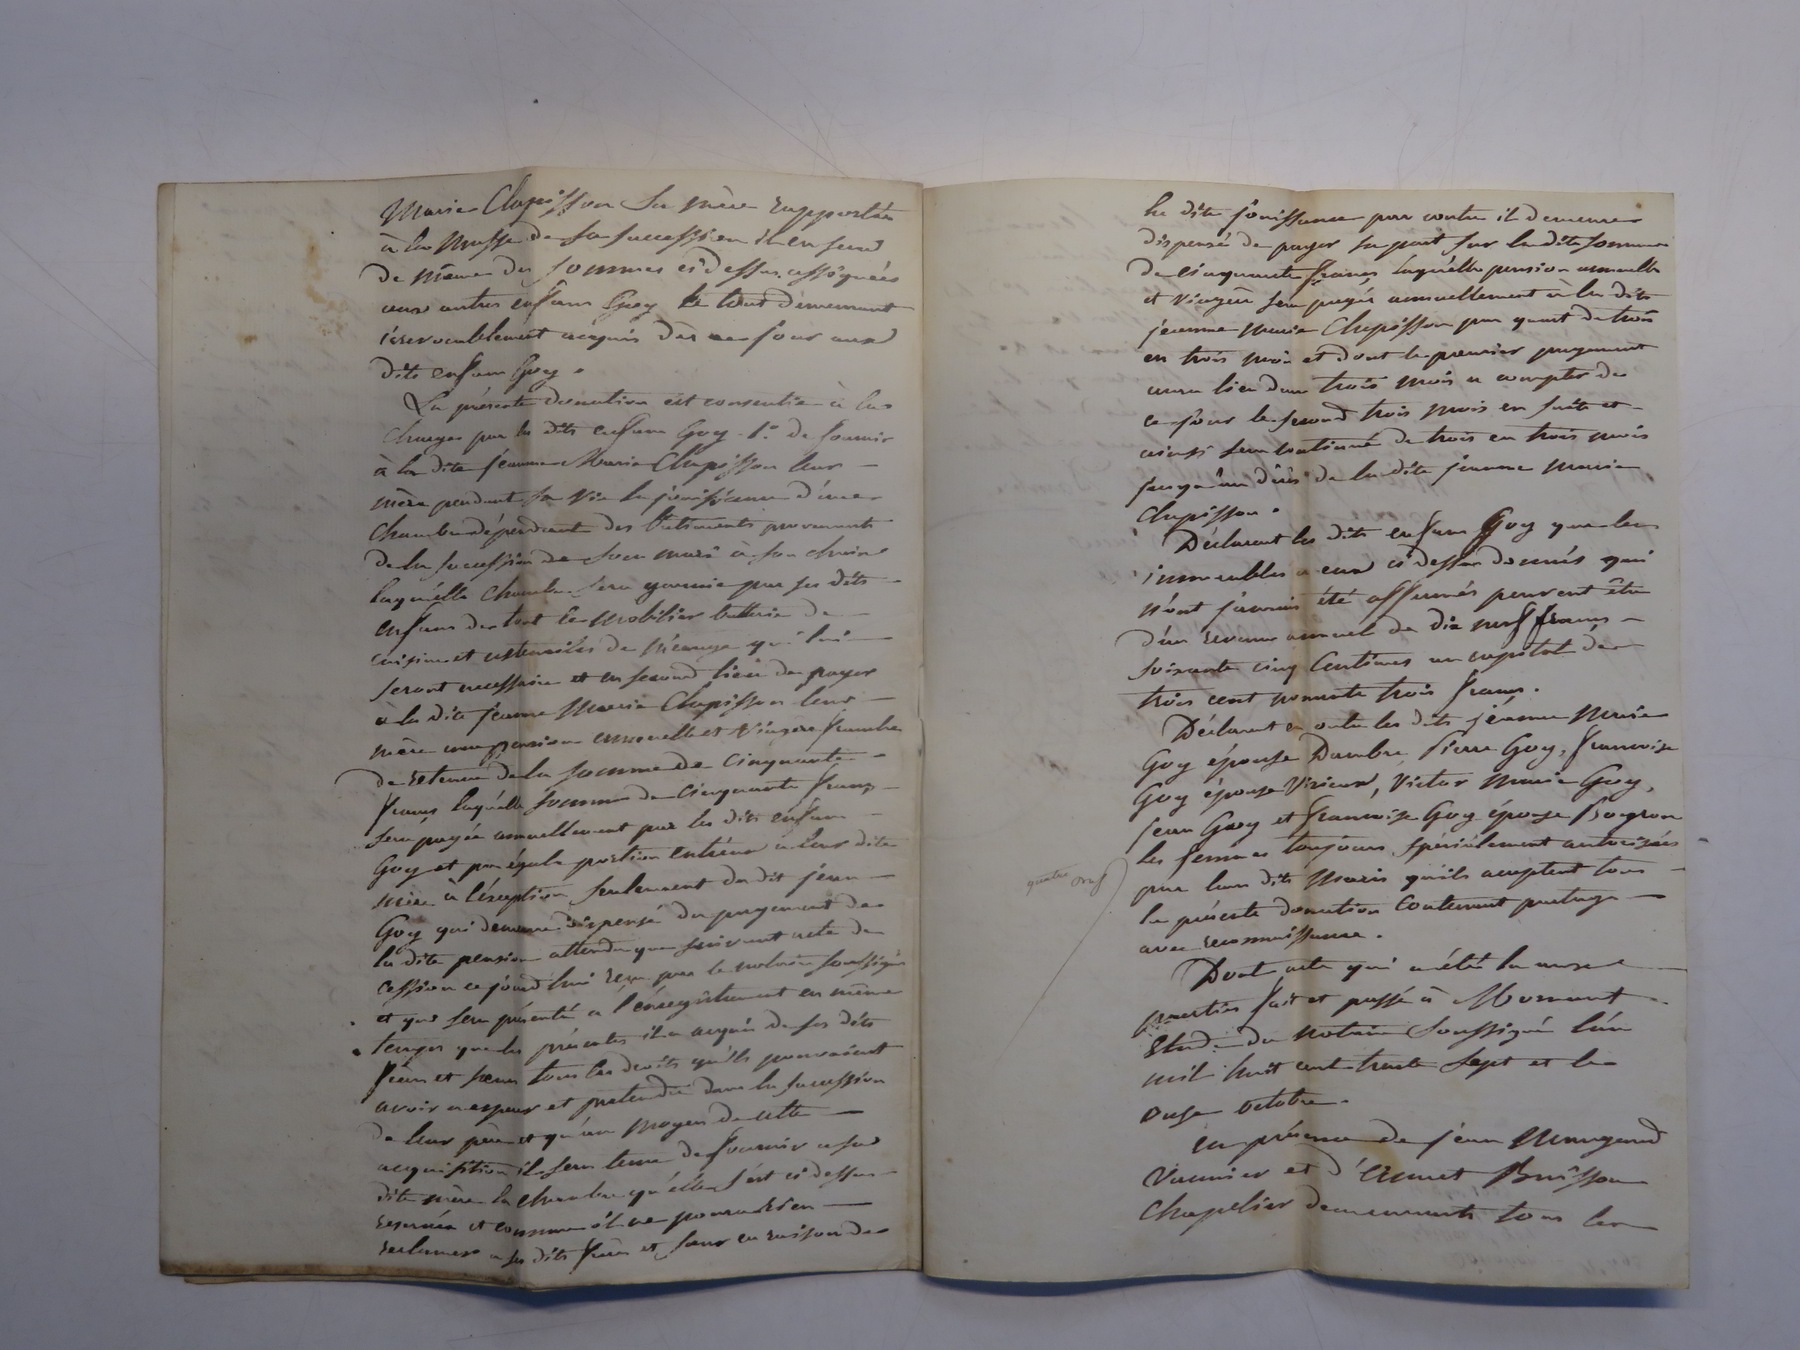 Marie Chapisson Sa mère rapportée
à la Masse de sa succession il en sera
de même des sommes ci dessus assignées
aux autres enfans Goy le tout demeurant
irrevocablement acquis dès ce jour aux
dits enfans Goy.
La présente donation est consentie à la
charge par les dits enfans Goy 1.º de fournir
à la dite jeanne Marie Chapisson leur
mère pendant sa vie la jouissance d'une
chambre dépendant des Batiments provenants
de la succession de son mari à son choix
laquelle chambre sera garnie par ses dits
enfans de tout le mobilier batterie de
cuisine et ustensiles de ménage qui lui
seront necessaire et en second lieu de payer
à la dite jeanne Marie Chapisson leur
mère une pension annuelle et Viagère franche
de retenue de la somme de cinquante
francs laquelle somme de cinquante francs
sera payée annuellement par les dits enfans
Goy et par égale portion entreux a leur dite
mère à l'exception seulement du dit jean
Goy qui demeure dispensé du payement de
la dite pension attendu que suivant acte de
cession ce jourd'hui reçu par le notaire soussigné
et qui sera présenté a l'enregistrement en même
temps que les présentes il a acquis de ses dits
frères et sœurs tous les droits qu'ils pouvaient
avoir a espérer et pretendre dans la succession
de leur père et qu'au moyen de cette
acquisition il sera tenu de fournir a sa
dite mère la chambre qu'elle s'est ci dessus
reservée et comme il ne pourra rien
reclamer a ses dits frères et sœurs en raison de
la dite jouissance par contre il demeure
dispensé de payer sa part sur la dite somme
de cinquante francs, laquelle pension annuelle
et viagère sera payée annuellement à la dite
jeanne marie Chapisson par quart de trois
en trois mois et dont le premier payement
aura lieu dans trois mois a compter de
ce jour le second trois mois en suite et
ainsi sera continué de trois en trois mois
jusqu'au décès de la dite jeanne marie
Chapisson.
Déclarent les dits enfans Goy que les
immeubles a eux ci dessus donnés qui
n'ont jamais été affermés peuvent être
d'un revenu annuel de dix neuf francs
soixante cinq Centimes au capital de
trois cent nonante trois francs.
Déclarent en outre les dits jeanne Marie
Goy épouse Dambre, Pierre Goy, francoise
Goy épouse Vizieux, Victor Marie Goy,
jean Goy et francoise Goy épouse Bogron
les femmes toujours spécialement autorisées
par leurs dits Maris quils acceptent tous
la présente donation contenant partage
avec reconnaissance.
quatre neuf
Dont acte qui a été lu aux
parties fait et passé à Mornant
Etude du notaire soussigné l'an
mil huit cent trente sept et le
onze octobre.
En présence de jean
Vannier et d'Ennet Buisson
Chapelier demeurants tous les